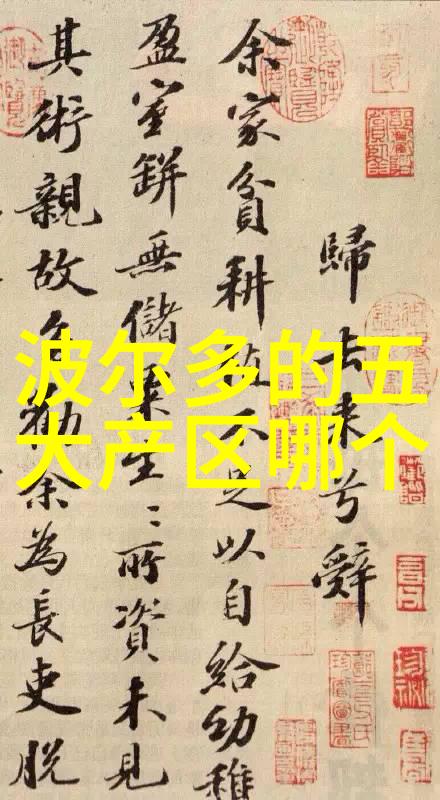 波尔多的五
大产区哪个
歸去来兮辭
余家貧耕植不足以自給幼稚
盈室缾無儲粟生〻所資未見
其術親故多勸余為長吏脱